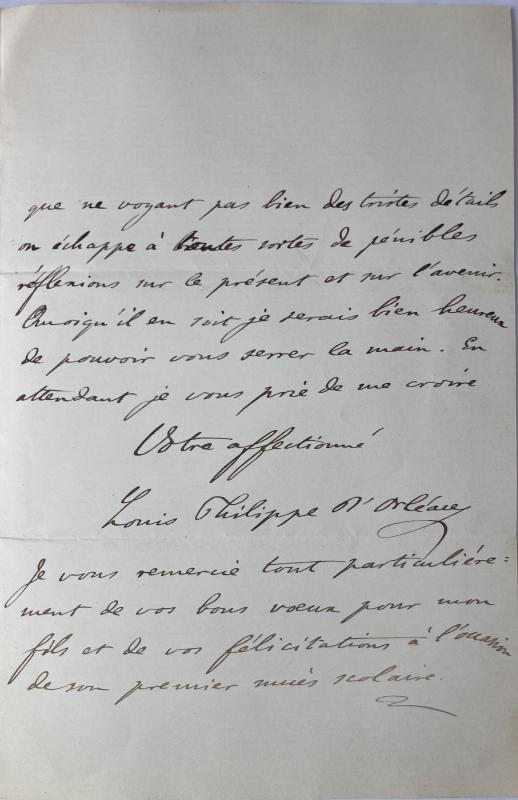 que ne voyant pas bien des tristes détails
on échappe à toutes sortes de pénibles
réflexions sur le présent et sur l'avenir.
Quoiqu'il en soit je serais bien heureux
de pouvoir vous serrer la main. En
attendant je vous prie de me croire
Votre affectionné
Louis Philippe d'Orléans
Je vous remercie tout particulière=
ment de vos bons vœux pour mon
fils et de vos félicitations à l'occasion
de son premier succès scolaire.